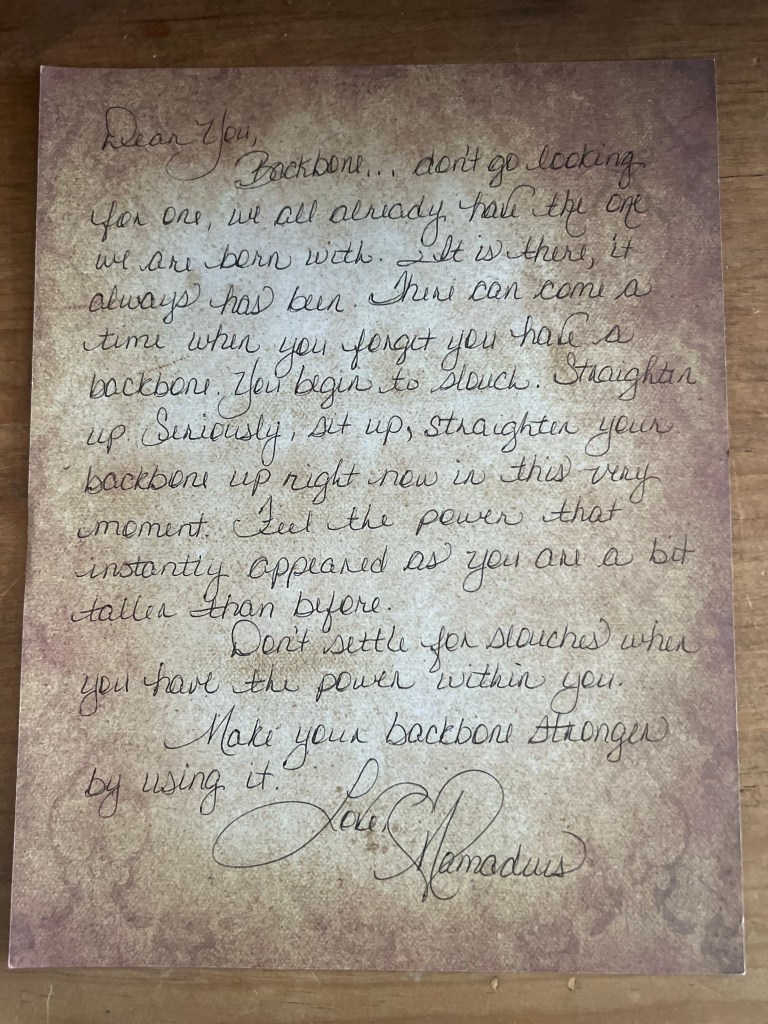 Dear You,
Backbone... don't go looking
for one, we all already have the one
we are born with. It is there, it
always has been. There can come a
time when you forget you have a
backbone. You begin to slouch. Straighten
up. Seriously, sit up, straighten your
backbone up right now in this very
moment. Feel the power that
instantly appeared as you are a bit
taller than before.
Don't settle for slouches when
you have the power within you.
Make your backbone stronger
by using it.
Love,